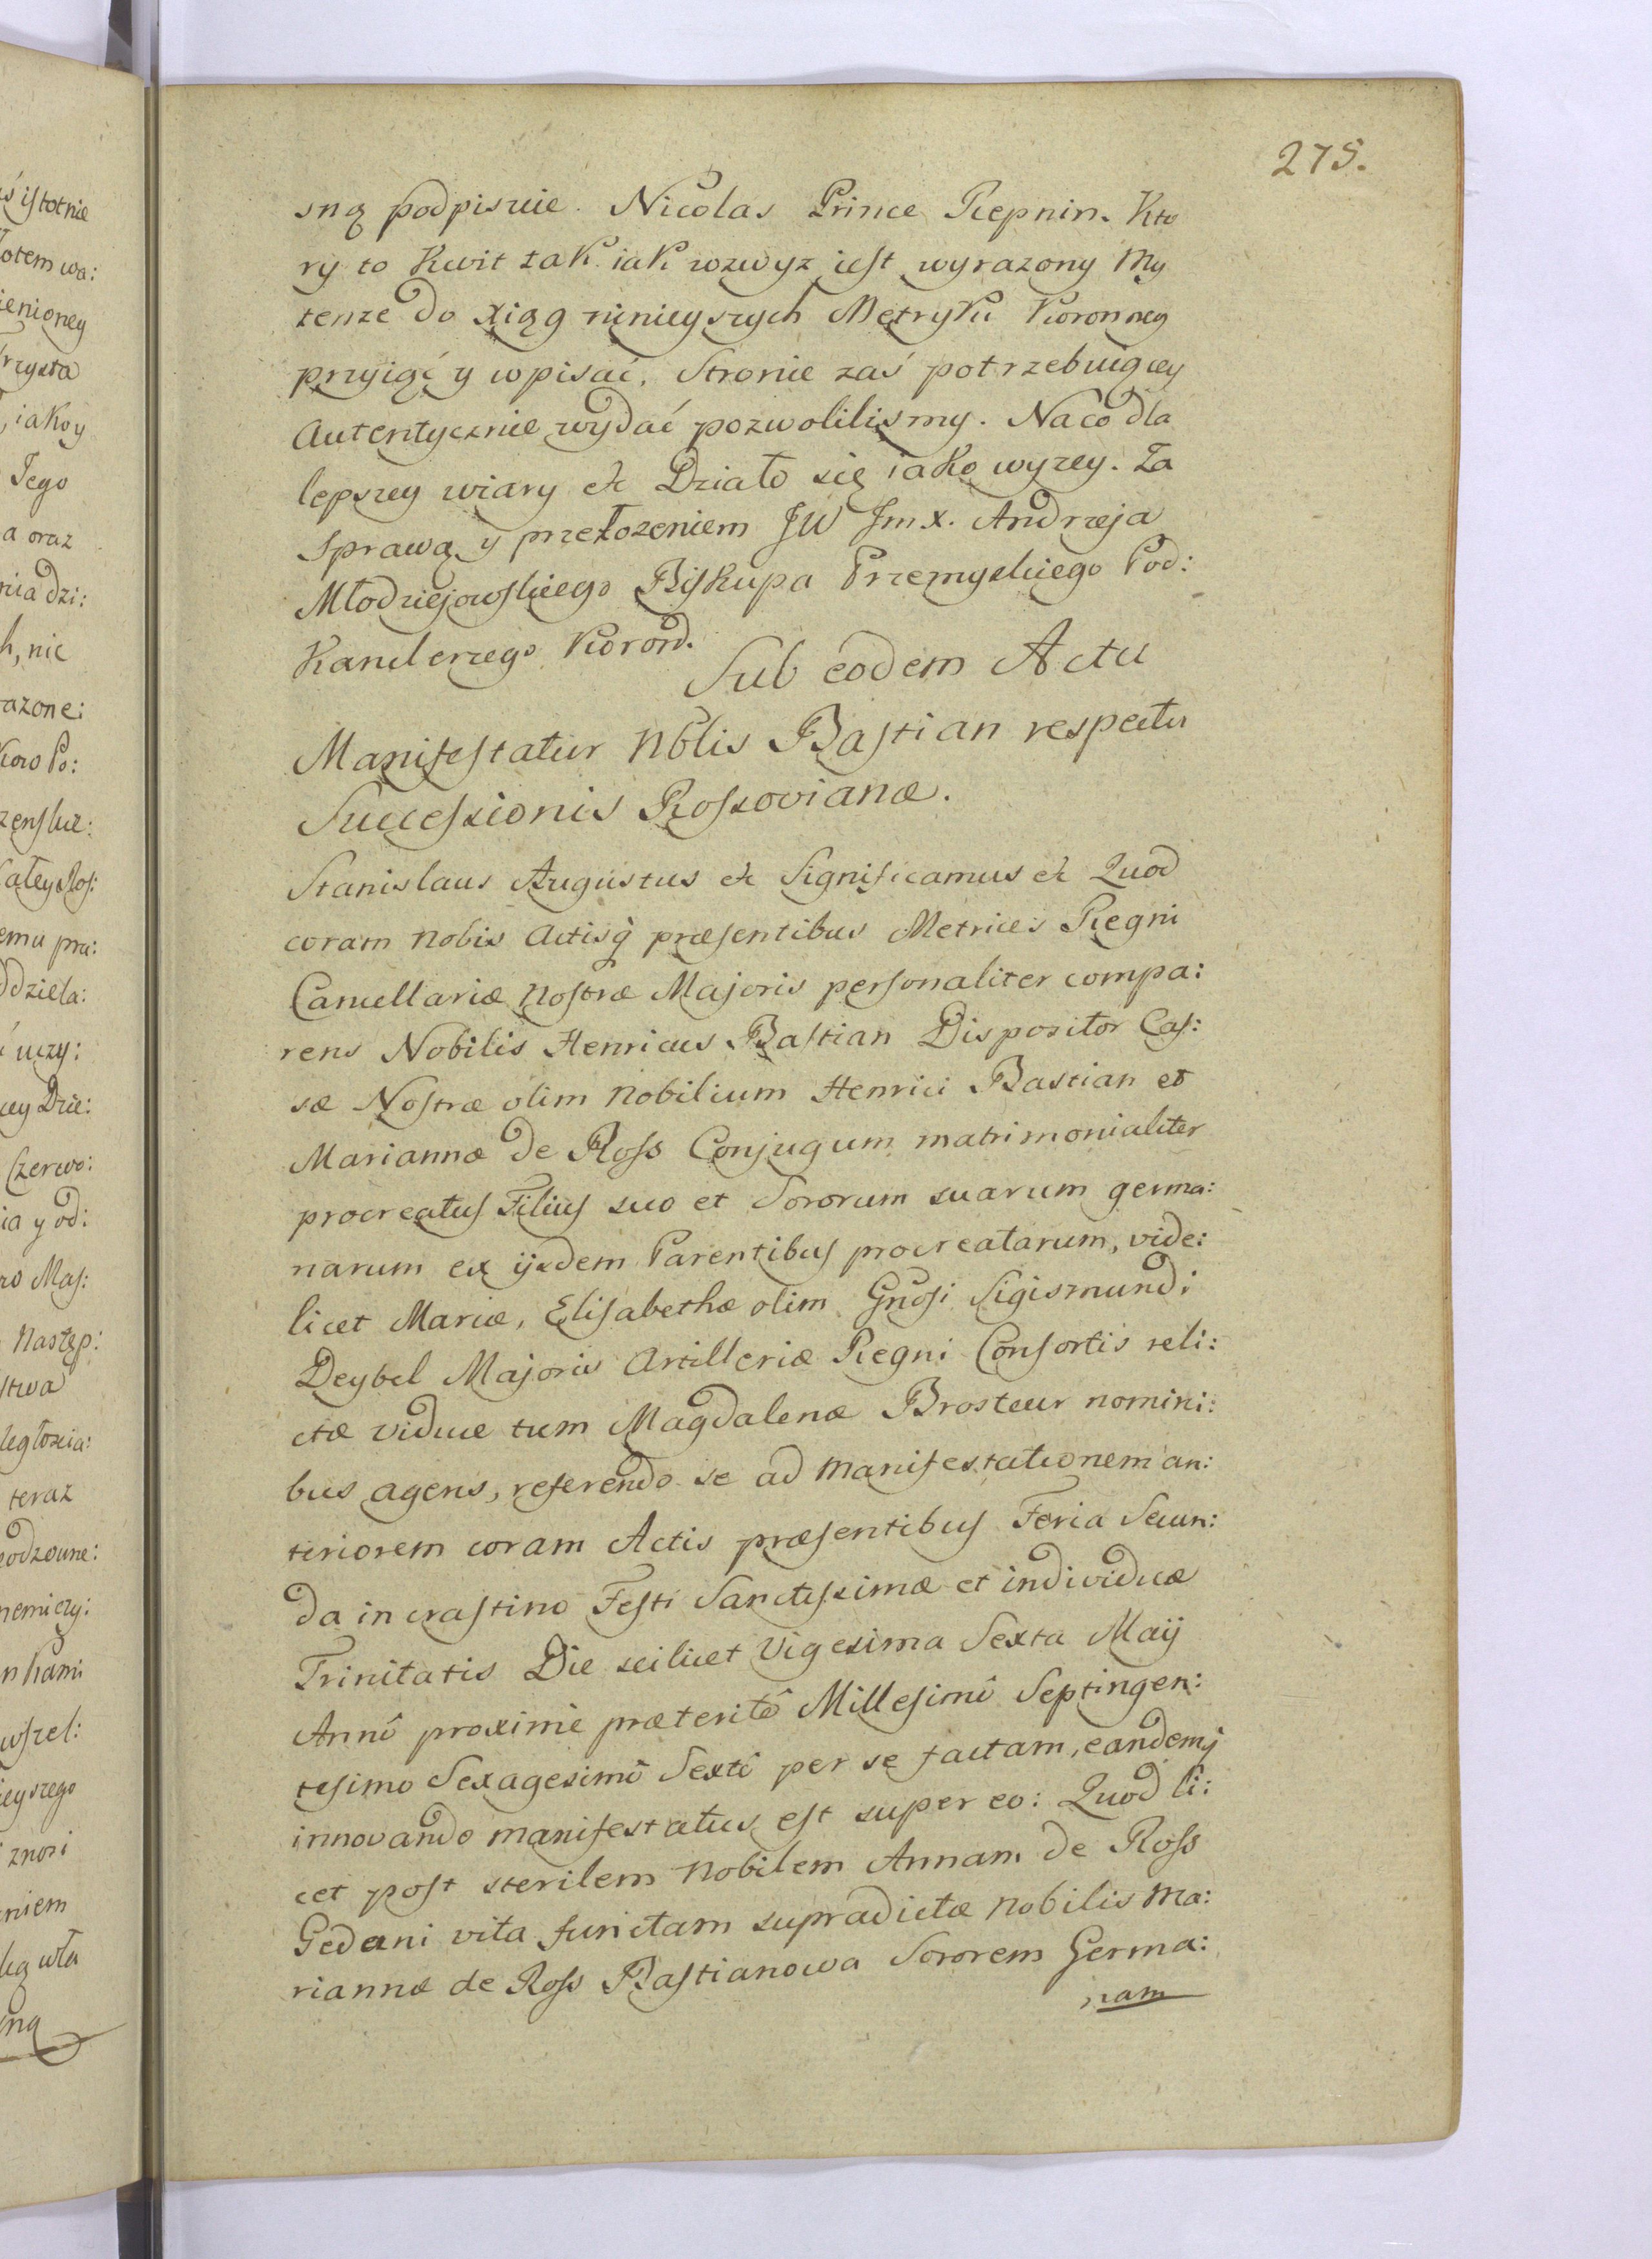 275.
sną podpisuie. Nicolas Prince Repnin. Kto
ry to Kwit tak iak wzwyz iest wyrazony My
tenze do Xiąg ninieyszych Metryki Koronney
przyiąć y wpisać, Stronie zaś potrzebuiącey
Autentycznie wydać pozwolilismy. Na co dla
lepszey wiary &c Działo się iako wyzey. Za
Sprawą y przełozeniem JW Jmx. Andrzeja
Młodziejowskiego Biskupa Przemyskiego Pod:
Kanclerzego Koron.
Sub eodem Actu
Manifestatur Nblis Bastian respectu
Successionis Rossovianæ.
Stanislaus Augustus &c Significamus &c Quod
coram nobis Actisq præsentibus Metrices Regni
Cancellariæ Nostræ Majoris personaliter compa:
rens Nobilis Henricus Bastian Dispositor Cas:
sæ Nostræ olim Nobilium Henrici Bastian et
Mariannæ de Ross Conjugum matrimonialiter
procreatus Filius suo et Sororum suarum germa:
narum ex ijsdem Parentibus procreatarum, vide:
licet Mariæ, Elisabethæ olim Gnosi Sigismundi
Deybel Majoris Artilleriæ Regni Consortis reli:
ctæ viduæ tum Magdalenæ Brosteur nomini:
bus agens, referendo se ad Manifestationem an:
teriorem coram Actis præsentibus Feria Secun:
da in crastino Festi Sanctissimæ et individuæ
Trinitatis Die scilicet Vigesima Sexta Maij
Annô proxime præteritô Millesimô Septingen:
tesimo Sexagesimô Sextô per se factam, eandemq
innovando manifestatus est super eo: Quod li:
cet post sterilem Nobilem Annam de Ross
Gedani vita functam supradictæ Nobilis Ma:
riannæ de Ross Bastianowa Sororem Germa:
nam